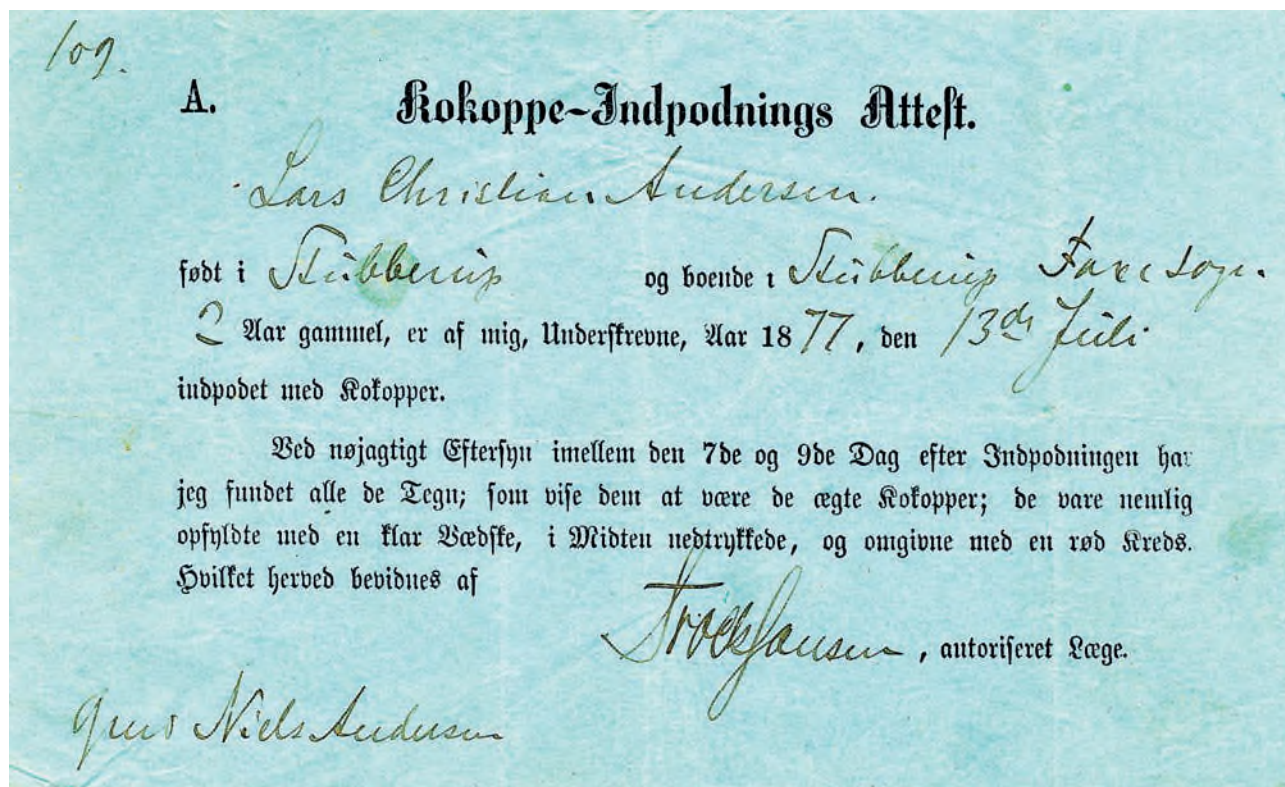 109.
A. Kokoppe-Indpodnings Attest.
Lars Christian Andersen.
født i Stubberup og boende i Stubberup Faxe Sogn.
2 Aar gammel, er af mig, Underskrevne, Aar 1877, den 13de Juli
indpodet med Kokopper.
Ved nøjagtigt Eftersyn imellem den 7de og 9de Dag efter Indpodningen har
jeg fundet alle de Tegn; som vise dem at være de ægte Kokopper; de vare nemlig
opfyldte med en klar Vædske, i Midten nedtrykkede, og omgivne med en rød Kreds.
Hvilket herved bevidnes af
, autoriseret Læge.
Niels Andersen